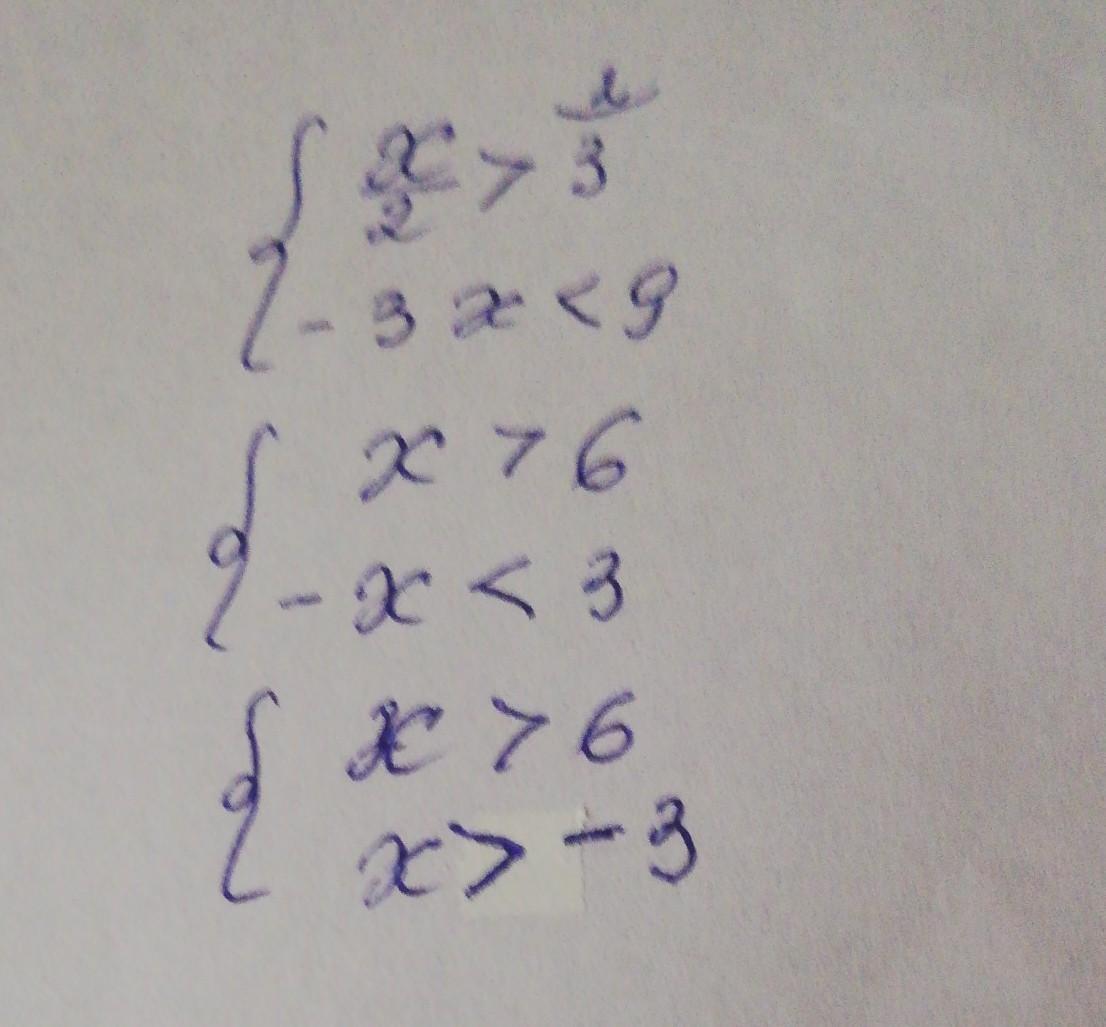 x/2 > 1/3
- 3x < 9
x > 6
- x < 3
x > 6
x > - 3